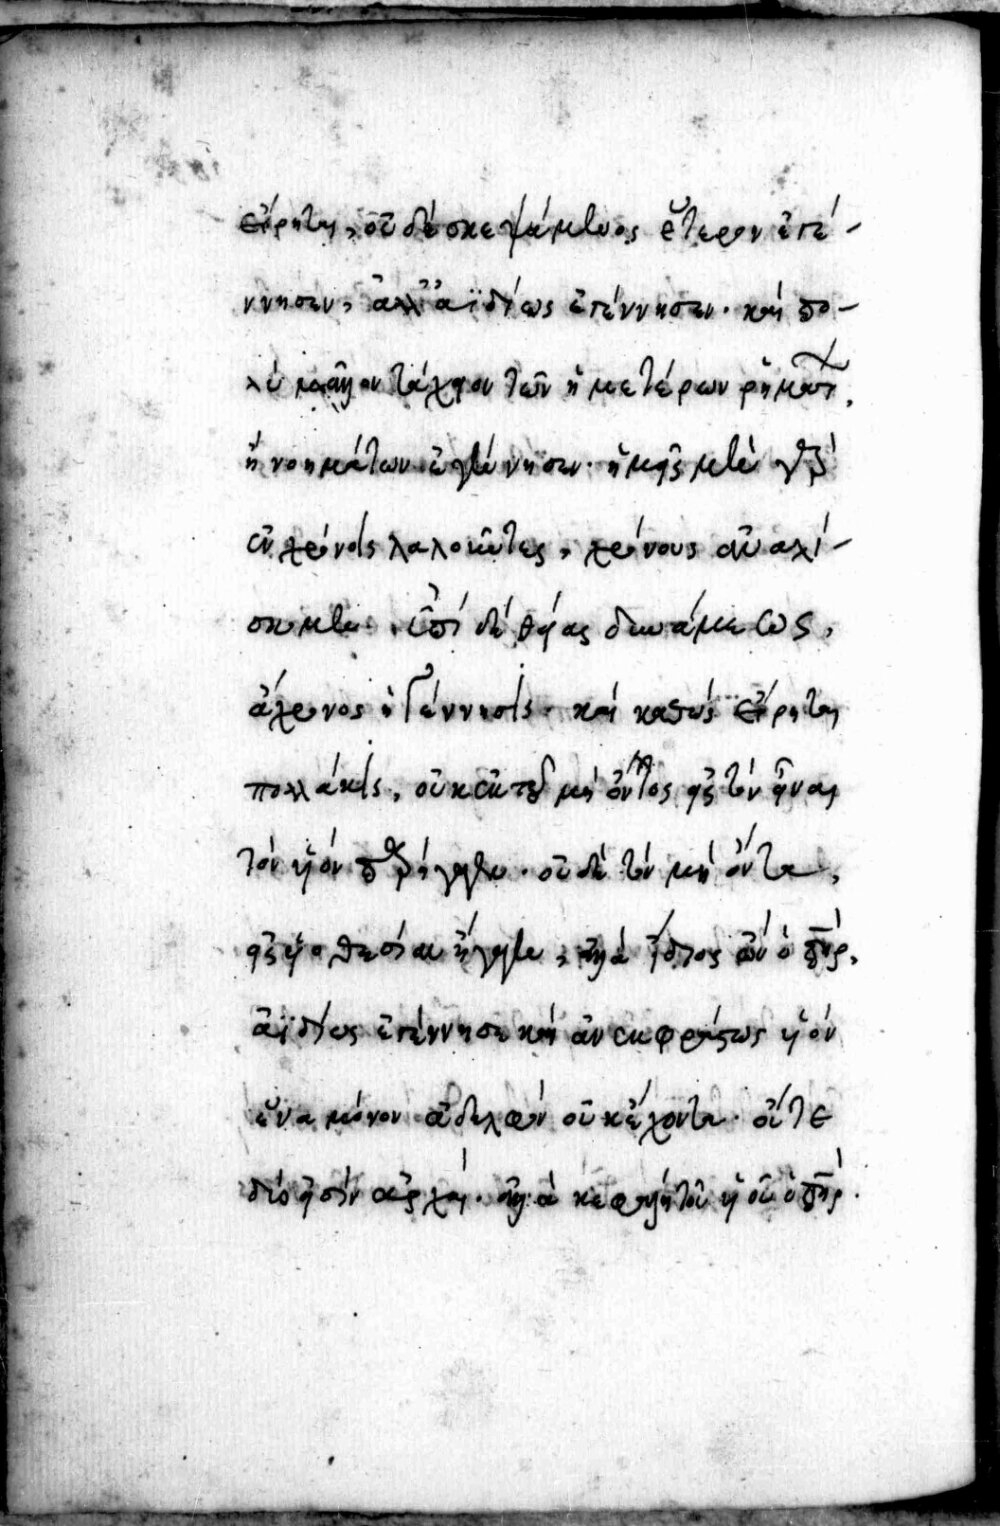 εἴρηται, οὐδὲ σκεψάμενος ὕστερον ἐγέ-
ννησεν, ἀλλ' ἀϊδίως ἐγέννησεν· καὶ πο-
λὺ μᾶλλον τάχιον τῶν ἡμετέρων ῥημάτ,
ἢ νοημάτων ἐγέννησεν· ἡμεῖς μὲν γὰρ
ἐν χρόνοις λαλοῦντες, χρόνους ἀναλί-
σκομεν· ἐπὶ δὲ θείας δυνάμεως,
ἄχρονος ἡ γέννησις· καὶ καθὼς εἴρηται
πολλάκις, οὐκ ἐκ τοῦ μὴ ὄντος εἰς τὸ εἶναι
τὸν υἱὸν παρήγαγεν· οὐδὲ τὸν μὴ ὄντα,
εἰς υἱοθεσίαν ἤγαγεν, ἀλλὰ ἀΐδιος ὢν ὁ πηρ,
ἀϊδίως ἐγέννησε καὶ ἀνεκφράστως υἱὸν
ἕνα μόνον ἀδελφὸν οὐκ ἔχοντα· οὔτε
δύο εἰσὶν ἀρχαί· ἀλλὰ κεφαλὴ τοῦ υἱοῦ ὁ πηρ·